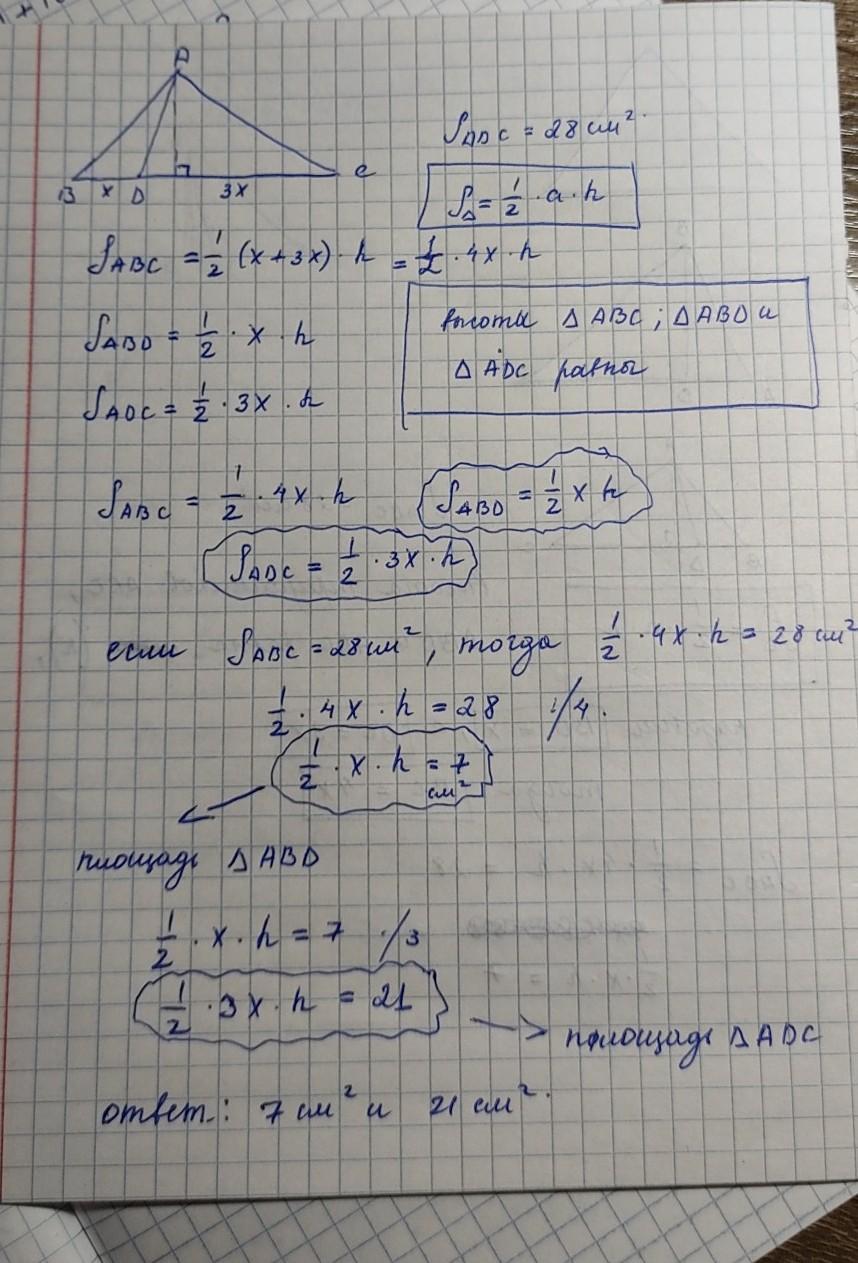 A
B x D 3x C
S ADC = 28 см².
S△ = 1/2 · a · h
S ABC = 1/2 (x + 3x) · h = 1/2 · 4x · h
S ABD = 1/2 · x · h
высоты △ ABC ; △ABD и
△ ADC равны
S ADC = 1/2 · 3x · h
S ABC = 1/2 · 4x · h
S ABD = 1/2 x h
S ADC = 1/2 · 3x · h
если S ABC = 28 см², тогда 1/2 · 4x · h = 28 см²
1/2 · 4x · h = 28 :/4.
1/2 · x · h = 7 см²
площадь △ ABD
1/2 · x · h = 7 ·/3
1/2 · 3x · h = 21
площадь △ ADC
ответ.: 7 см² и 21 см².